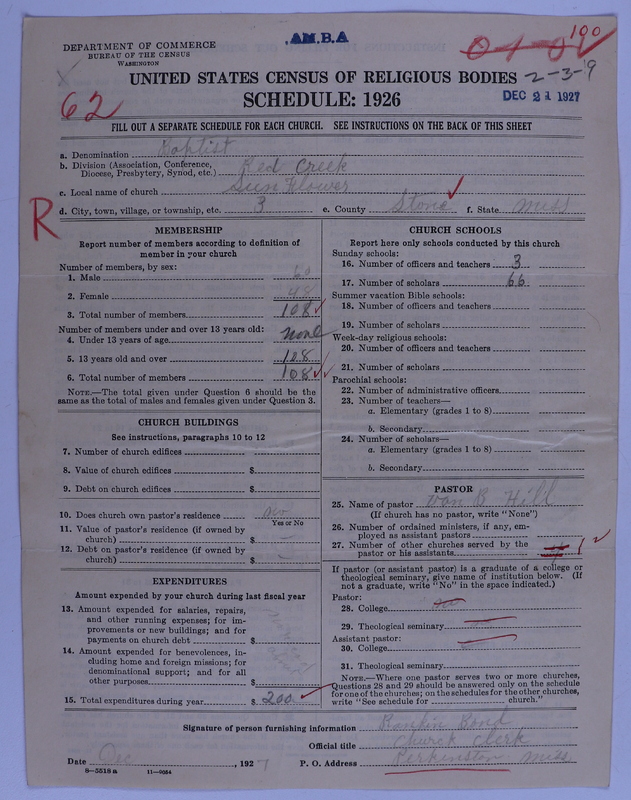 AM.B.A
DEPARTMENT OF COMMERCE
BUREAU OF THE CENSUS
WASHINGTON
190
UNITED STATES CENSUS OF RELIGIOUS BODIES 2-3-19
62
SCHEDULE: 1926
DEC 21 1927
FILL OUT A SEPARATE SCHEDULE FOR EACH CHURCH. SEE INSTRUCTIONS ON THE BACK OF THIS SHEET
a. Denomination Baptist
b. Division (Association, Conference, Diocese, Presbytery, Synod, etc.) Red Creek
c. Local name of church Sun Flower
d. City, town, village, or township, etc. 3 e. County Stone f. State Miss
R
MEMBERSHIP
Report number of members according to definition of
member in your church
Number of members, by sex:
1. Male 60
2. Female 48
3. Total number of members 108
Number of members under and over 13 years old:
4. Under 13 years of age None
5. 13 years old and over 108
6. Total number of members 108
NOTE.—The total given under Question 6 should be the
same as the total of males and females given under Question 3.
CHURCH BUILDINGS
See instructions, paragraphs 10 to 12
7. Number of church edifices
8. Value of church edifices $
9. Debt on church edifices $
10. Does church own pastor's residence? no
Yes or No
11. Value of pastor's residence (if owned by
church) $
12. Debt on pastor's residence (if owned by
church) $
EXPENDITURES
Amount expended by your church during last fiscal year
13. Amount expended for salaries, repairs,
and other running expenses; for im-
provements or new buildings; and for
payments on church debt $
14. Amount expended for benevolences, in-
cluding home and foreign missions; for
denominational support; and for all
other purposes $
15. Total expenditures during year $ 200
CHURCH SCHOOLS
Report here only schools conducted by this church
Sunday schools:
16. Number of officers and teachers 3
17. Number of scholars 66
Summer vacation Bible schools:
18. Number of officers and teachers
19. Number of scholars
Week-day religious schools:
20. Number of officers and teachers
21. Number of scholars
Parochial schools:
22. Number of administrative officers
23. Number of teachers—
a. Elementary (grades 1 to 8)
b. Secondary
24. Number of scholars—
a. Elementary (grades 1 to 8)
b. Secondary
PASTOR
25. Name of pastor Van B Hill
(If church has no pastor, write "None")
26. Number of ordained ministers, if any, em-
ployed as assistant pastors
27. Number of other churches served by the
pastor or his assistants 1
If pastor (or assistant pastor) is a graduate of a college or
theological seminary, give name of institution below. (If
not a graduate, write "No" in the space indicated.)
Pastor:
28. College no
29. Theological seminary
Assistant pastor:
30. College
31. Theological seminary
NOTE.—Where one pastor serves two or more churches,
Questions 28 and 29 should be answered only on the schedule
for one of the churches; on the schedules for the other churches,
write "See schedule for church."
Signature of person furnishing information Rankin Bond
Official title Church Clerk
Date Dec , 1927 P. O. Address Perkinston Miss
8-5518 a 11-9084